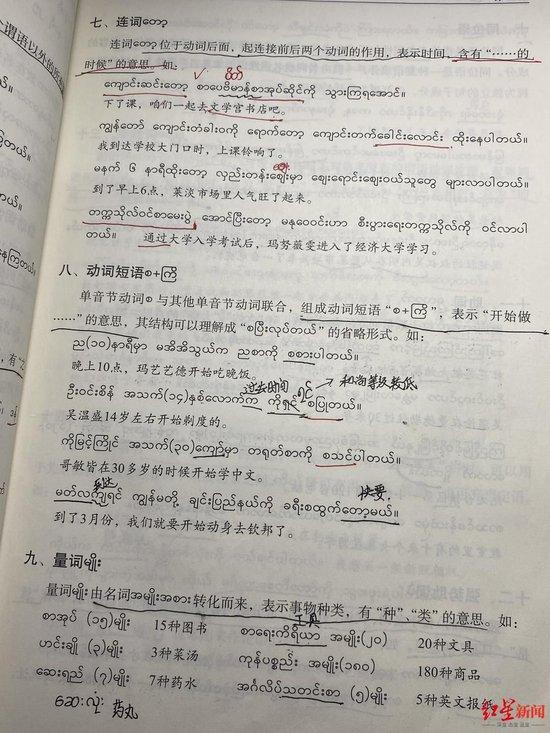 七、连词တော့
连词တော့ 位于动词后面，起连接前后两个动词的作用，表示时间，含有“……的
时候”的意思。如：
ကျောင်းဆင်းတော့ စာပေဗိမာန်စာအုပ်ဆိုင်ကို သွားကြရအောင်။
下了课，咱们一起去文学宫书店吧。
ကျွန်တော် ကျောင်းတံခါးဝကို ရောက်တော့ ကျောင်းတက်ခေါင်းလောင်း ထိုးနေပါတယ်။
我到达学校大门口时，上课铃响了。
မနက် ၆ နာရီထိုးတော့ လှည်းတန်းဈေးမှာ ဈေးရောင်းဈေးဝယ်သူတွေ များလာပါတယ်။
到了早上6点，莱淡市场里人气旺了起来。
တက္ကသိုလ်ဝင်စာမေးပွဲ အောင်ပြီးတော့ မနုဝေဝင်းဟာ စီးပွားရေးတက္ကသိုလ်ကို ဝင်လာပါ
တယ်။ 通过大学入学考试后，玛努薇雯进入了经济大学学习。
八、动词短语စ+ကြိ
单音节动词စ 与其他单音节动词联合，组成动词短语“စ+ကြိ”，表示“开始做
……”的意思，其结构可以理解成“စပြီးလုပ်တယ်”的省略形式。如：
ည(၁၀)နာရီမှာ မအိအိသွယ်က ညစာကို စစားပါတယ်။
晚上10点，玛艺艺德开始吃晚饭。
过去时间 ရှင် → 和尚等级较低
ဦးဝင်းစိန် အသက်(၁၄)နှစ်လောက်က ကိုရင် စပြုတယ်။
吴温盛14岁左右开始剃度的。
ကိုမြင့်ကြိုင် အသက်(၃၀)ကျော်မှာ တရုတ်စာကို စသင်ပါတယ်။
哥敏皆在30多岁的时候开始学中文。
到达 快要
မတ်လကျရင် ကျွန်မတို့ ချင်းပြည်နယ်ကို ခရီးစထွက်တော့မယ်။
到了3月份，我们就要开始动身去钦邦了。
九、量词မျိုး
量词မျိုး 由名词အမျိုးအစား 转化而来，表示事物种类，有“种”“类”的意思。如：
工具
စာအုပ် (၁၅)မျိုး 15种图书 စာရေးကိရိယာ အမျိုး(၂၀) 20种文具
ဟင်းချို (၃)မျိုး 3种菜汤 ကုန်ပစ္စည်း အမျိုး(၁၈၀) 180种商品
ဆေးရည် (၇)မျိုး 7种药水 အင်္ဂလိပ်သတင်းစာ (၅)မျိုး 5种英文报纸
ဆေးလုံး 药丸
红星新闻